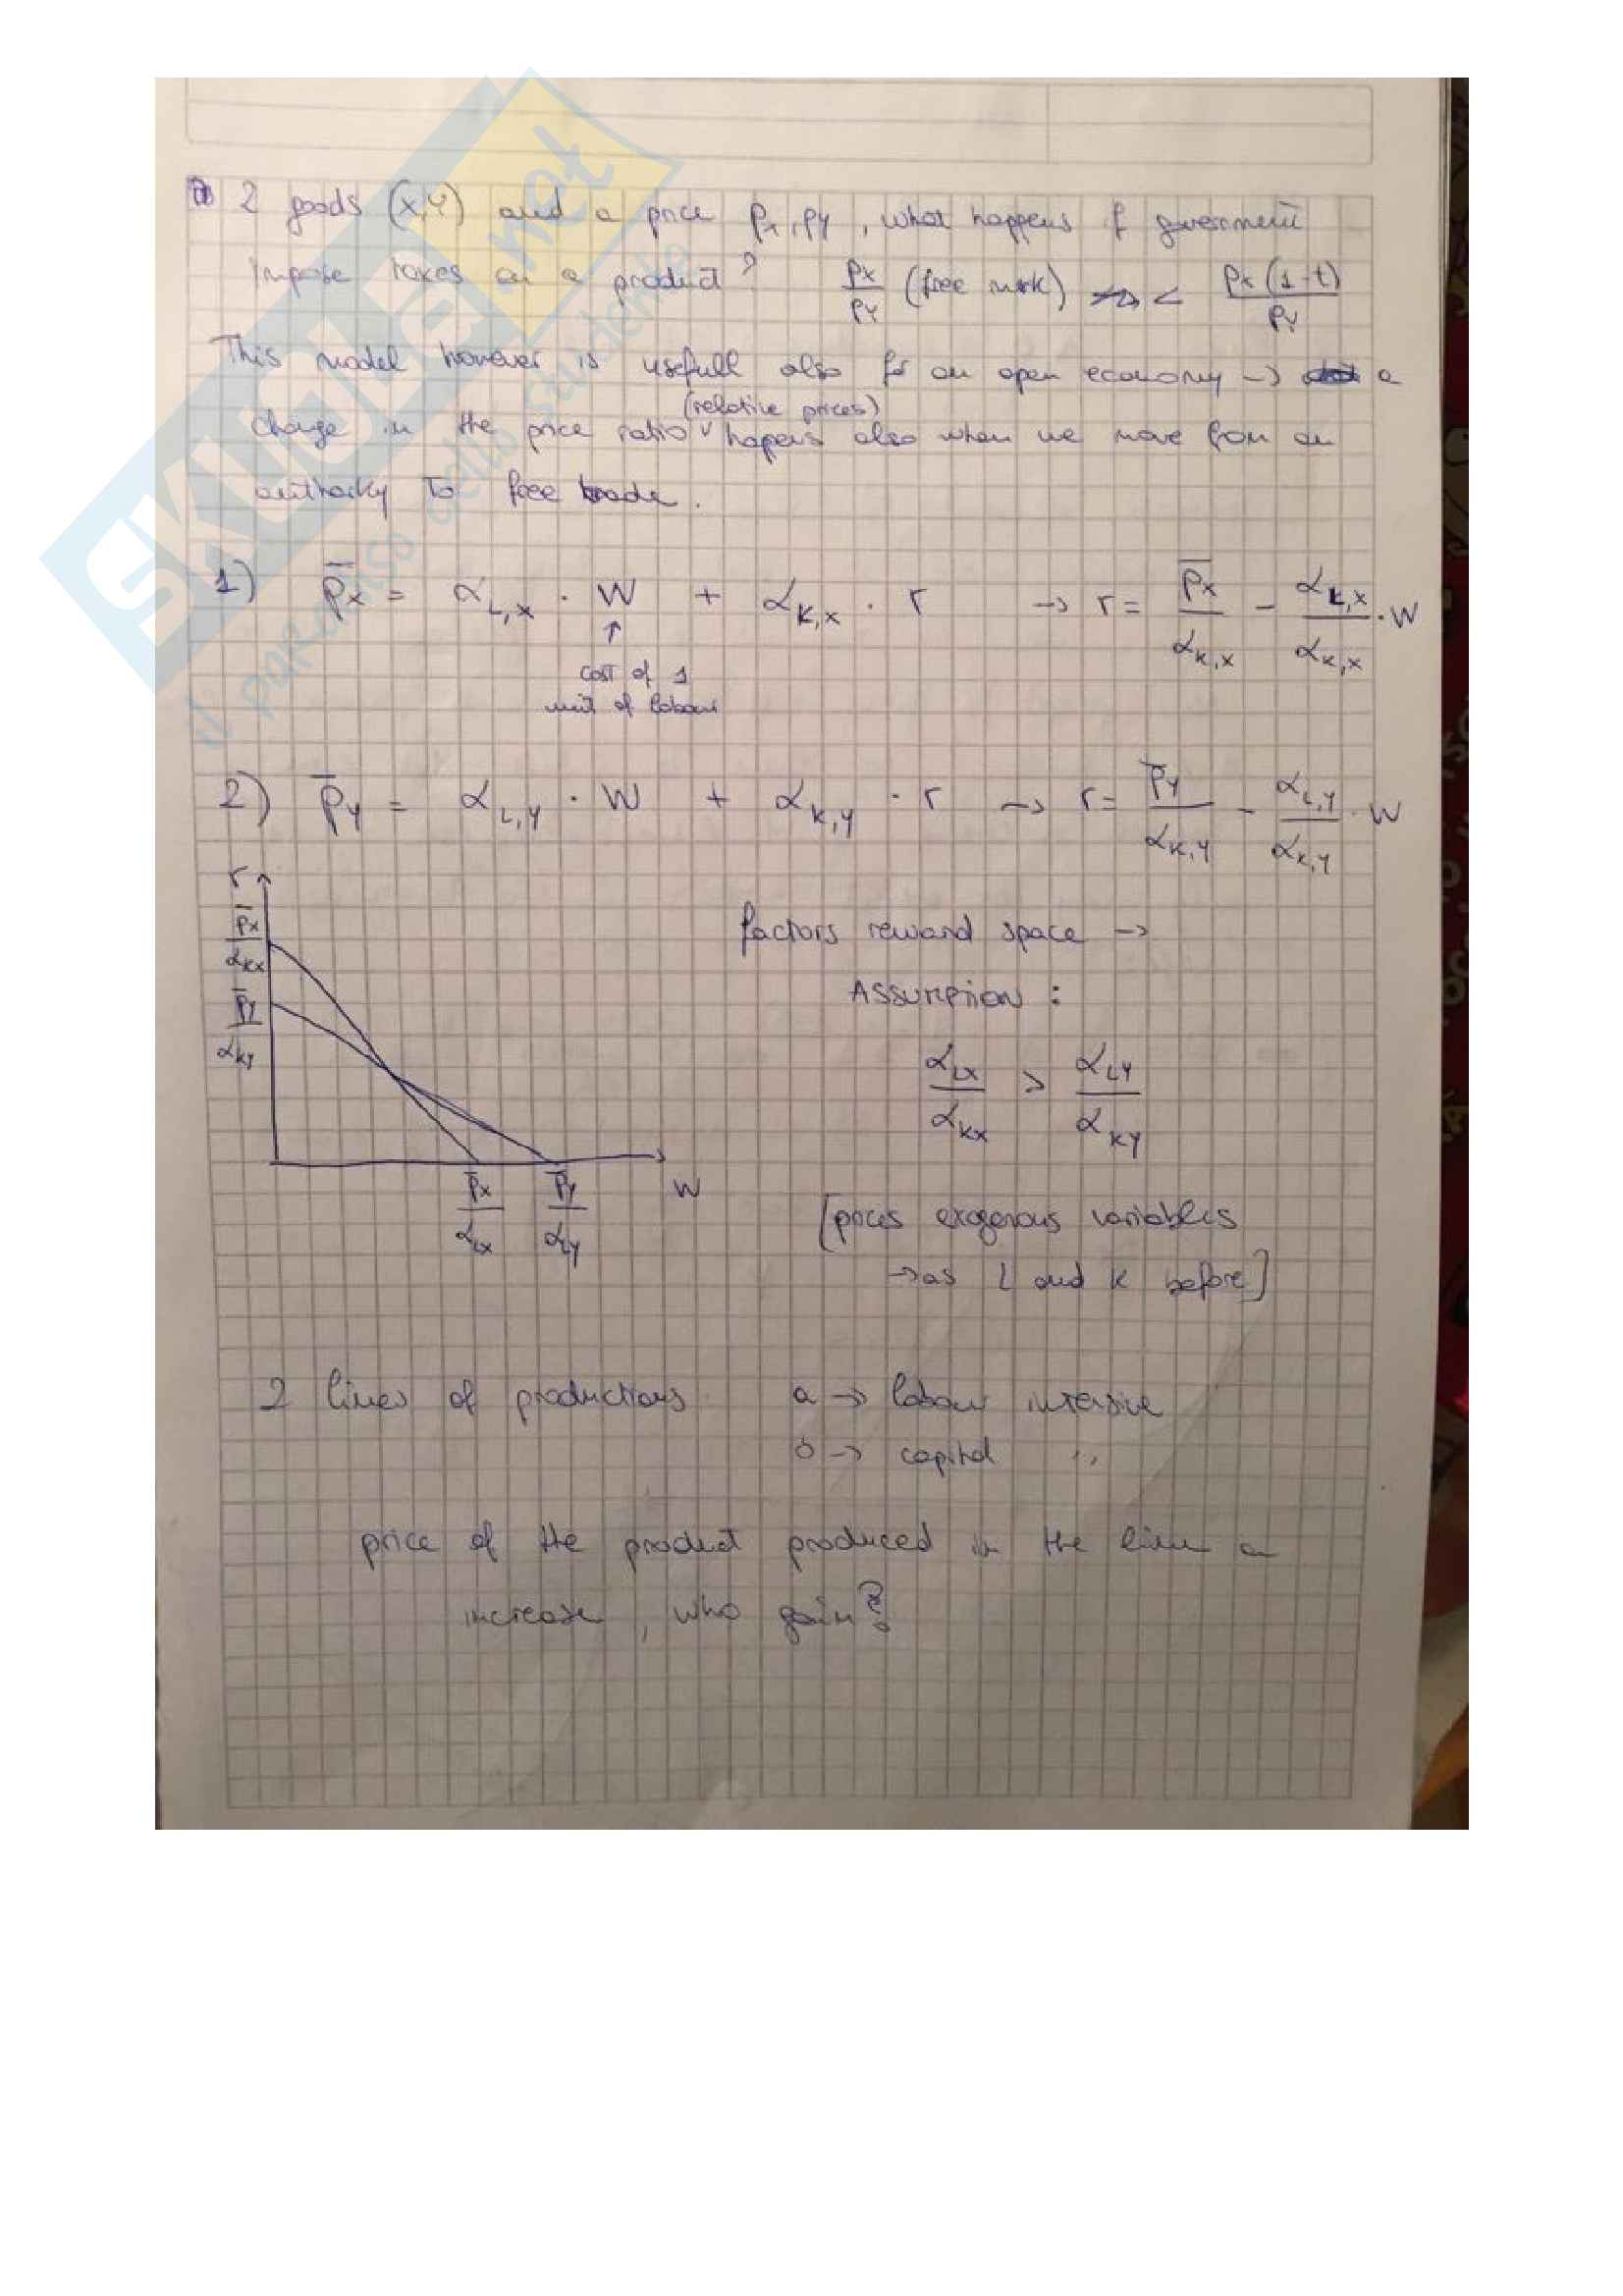 2 goods (x,y) and a price px, py, what happens if government
impose taxes on a product? px/py (free mrk) < px(1-t)/py
This model however is usefull also for an open economy → a
(relative prices)
change in the price ratio happens also when we move from an
autharky to free trade.
1) p̄x = αL,x · W + αK,x · r → r = p̄x/αK,x - αL,x/αK,x · W
↑
cost of 1
unit of labour
2) p̄y = αL,y · W + αK,y · r → r = p̄y/αK,y - αL,y/αK,y · W
r
p̄x/αKx
p̄y/αKy
p̄x/αLx
p̄y/αLy
W
factors reward space →
Assumption :
αLx/αKx > αLy/αKy
[prices exogenous variables
→ as L and K before]
2 lines of productions a → labour intensive
b → capital "
price of the product produced in the line a
increase, who gain?
SKUOLA.net
il paradiso dello studente